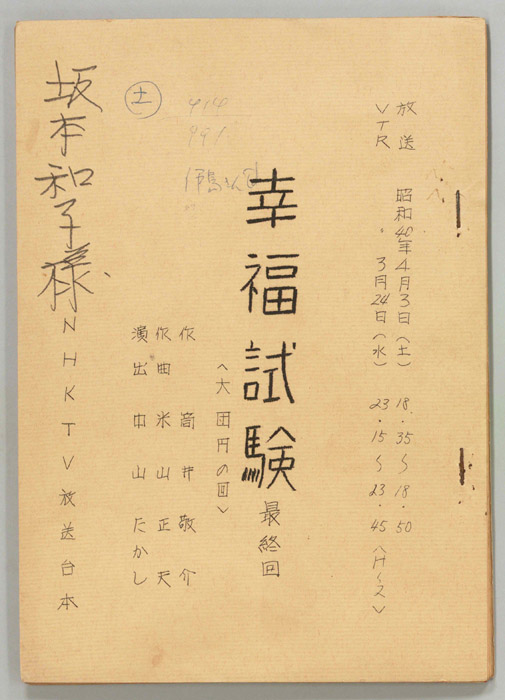 放送 昭和40年4月3日（土） 18.35〜18.50
VTR 〃 3月24日（水） 23.15〜23.45
幸福試験 最終回
〈大団円の回〉
作 筒井敬介
作曲 米山正夫
演出 中山たかし
土
NHKTV放送台本
坂本和子様